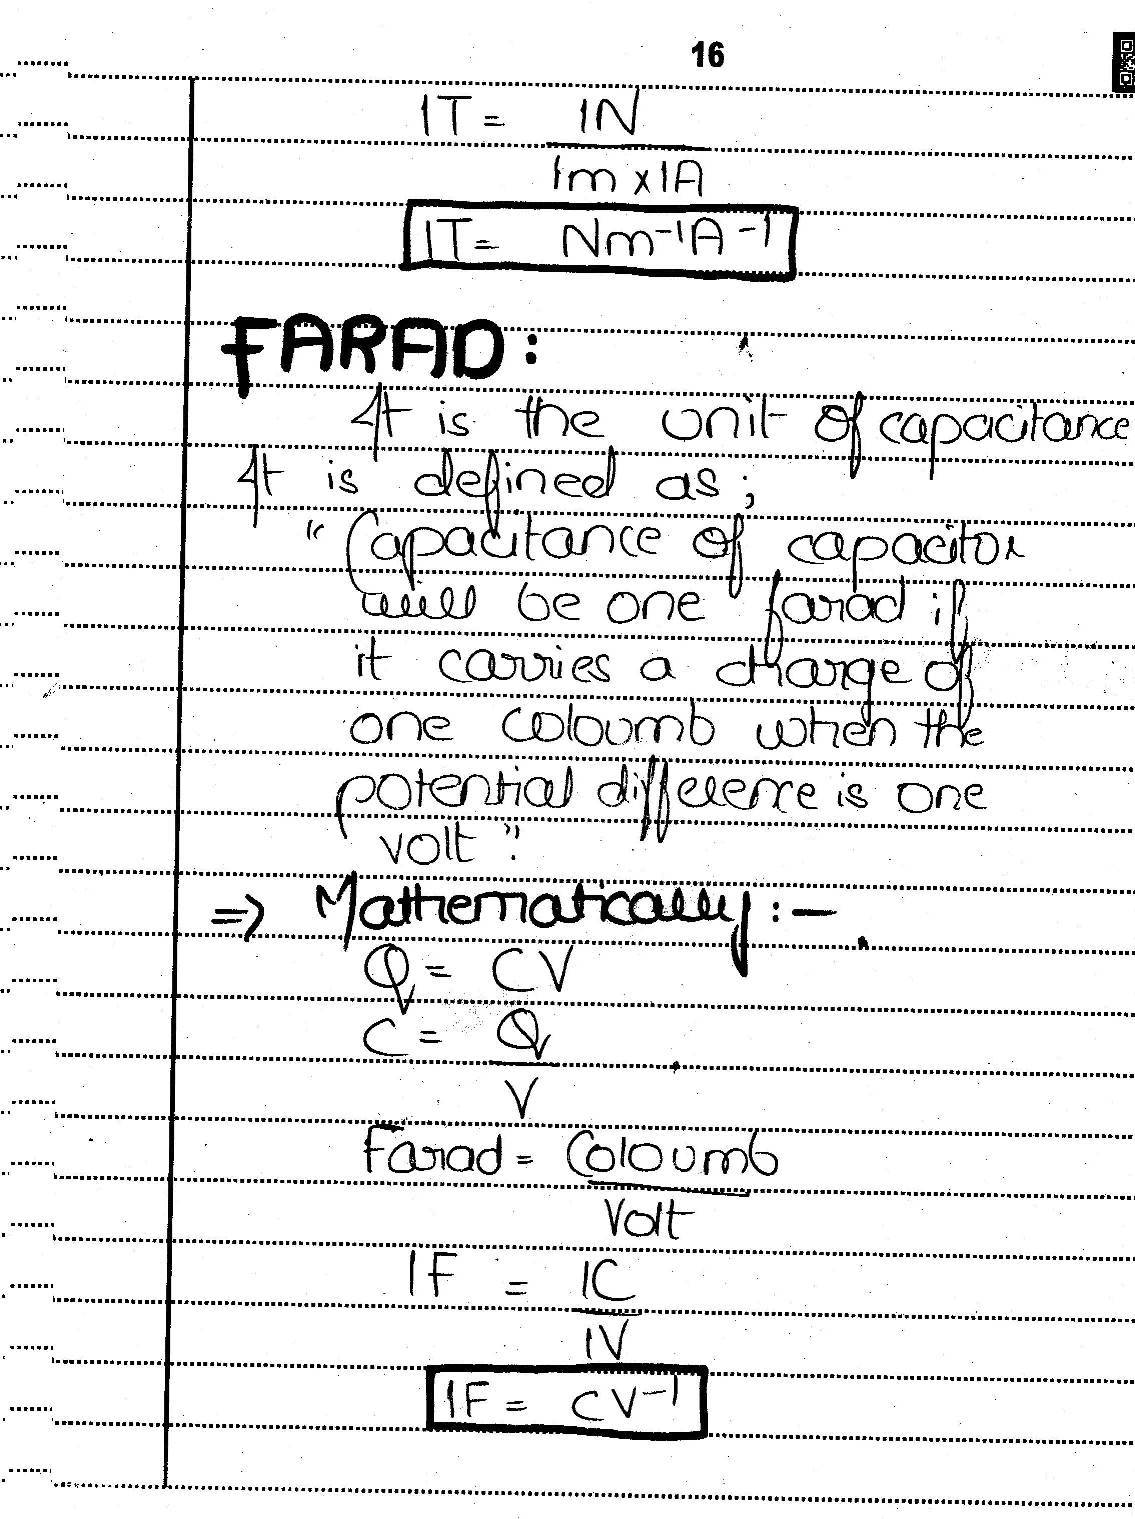 16
1T = 1N
1m x 1A
1T = Nm-1A-1
FARAD:
It is the unit of capacitance
It is defined as;
"Capacitance of capacitor
will be one farad if
it carries a charge of
one coloumb when the
potential difference is one
volt".
=> Mathematically:-
Q = CV
C = Q
V
Farad = Coloumb
Volt
1F = 1C
1V
1F = CV-1